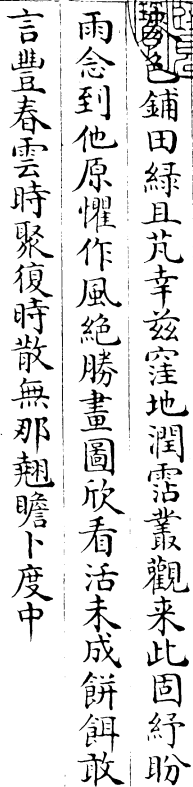 麥色鋪田綠且芃幸兹窪地潤霑叢觀来此固紓盼
雨念到他原懼作風絕勝畫圖欣看活未成餅餌敢
言豐春雲時聚復時散無那翹瞻卜度中